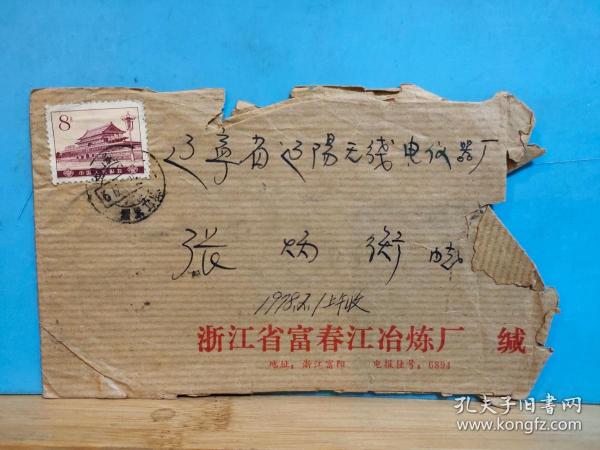 8分
中国人民邮政
辽宁省辽陽无线电仪器厂
张炳衡
1978.2.1上午收
浙江省富春江冶炼厂 缄
地址：浙江富阳 电报挂号：6894
孔夫子旧书网
www.kongfz.com